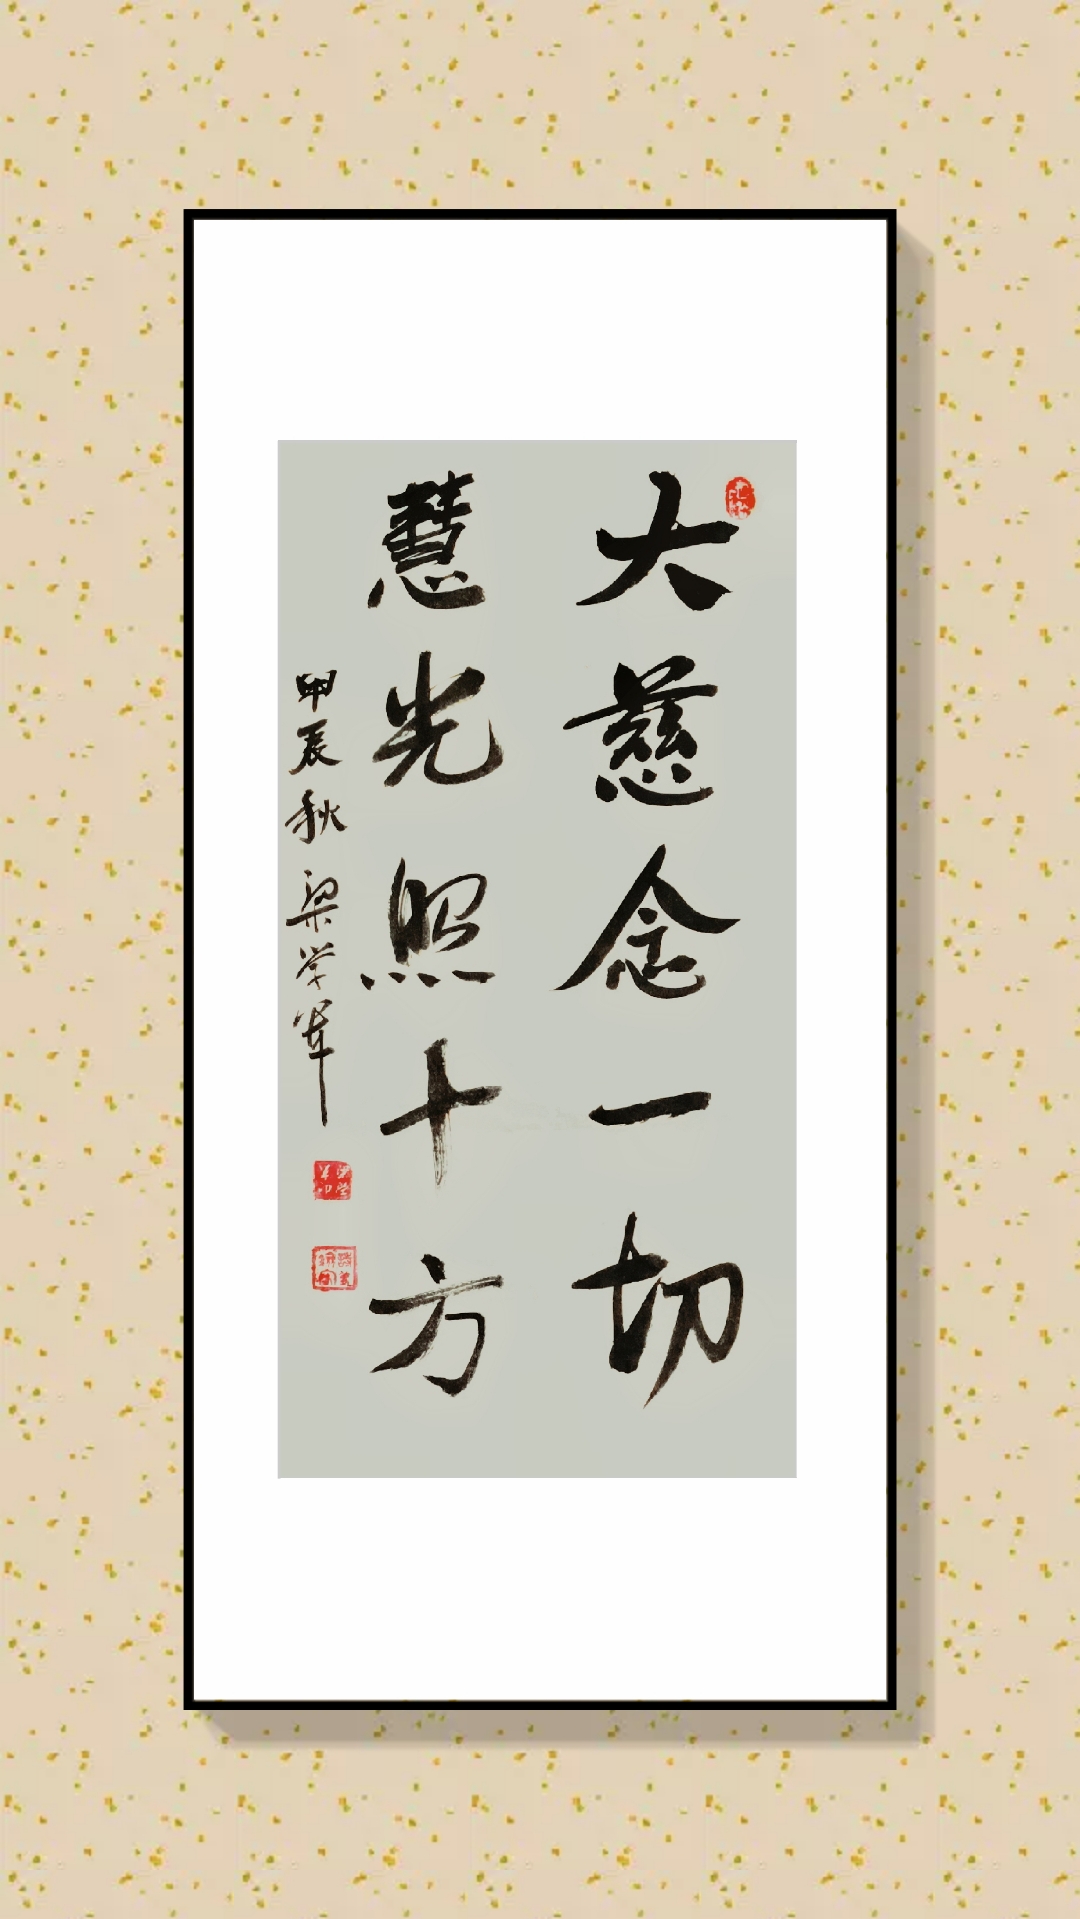 大慈念一切
慧光照十方
甲辰秋 梁学军